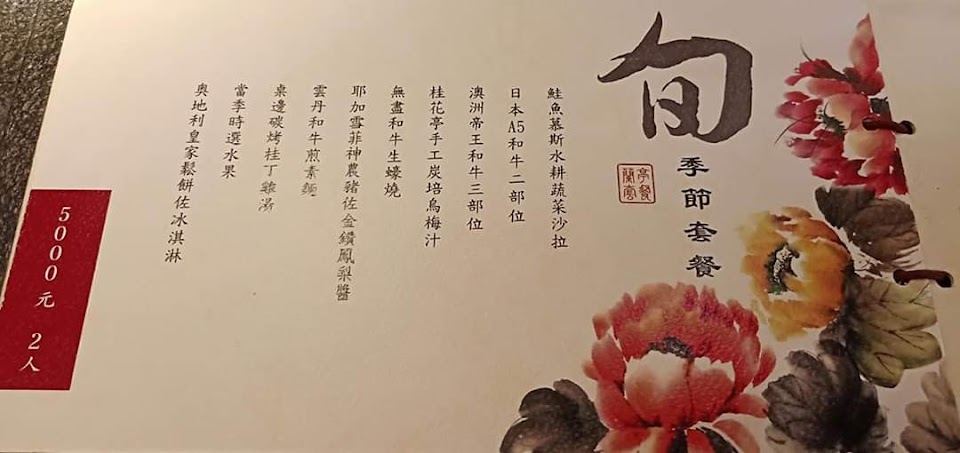 旬
季節套餐
鮭魚慕斯水耕蔬菜沙拉
日本A5和牛二部位
澳洲帝王和牛三部位
桂花亭手工炭培烏梅汁
無盡和牛生蠔燒
耶加雪菲神農豬佐金鑽鳳梨醬
雲丹和牛煎素麵
桌邊碳烤桂丁雞湯
當季時選水果
奧地利皇家鬆餅佐冰淇淋
5000元 2人